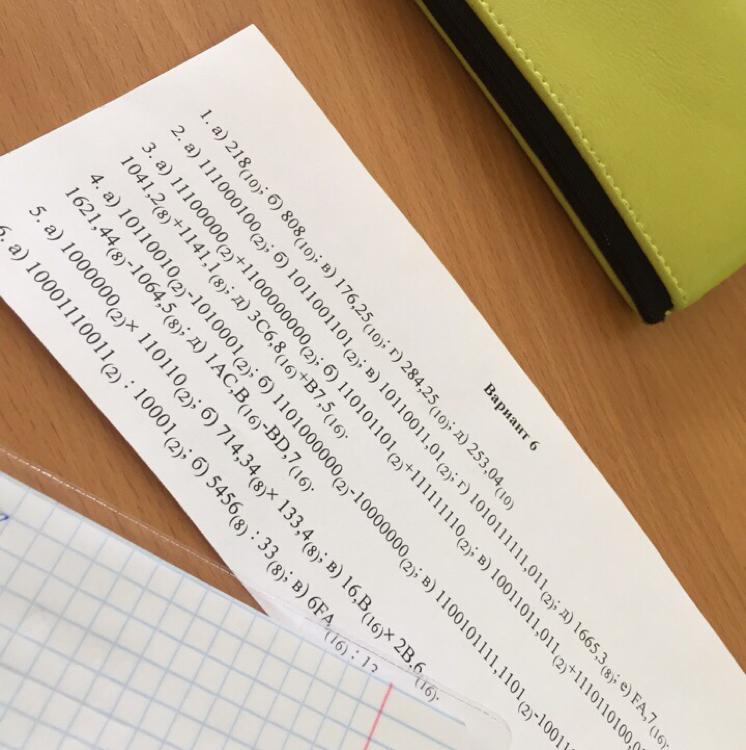 Вариант 6
1. а) 218(10); б) 808(10); в) 176,25(10); г) 284,25(10); д) 253,04(10)
2. а) 111000100(2); б) 1011001101(2); в) 10110011,01(2); г) 1010111111,011(2); д) 1665,3(8); е) FA,7(16).
3. а) 11100000(2)+1100000000(2); б) 110101101(2)+111111110(2); в) 10011011,011(2)+1110110100,0
1041,2(8)+1141,1(8); д) 3C6,8(16)+B7,5(16).
4. а) 10110010(2)-1010001(2); б) 1101000000(2)-10000000(2); в) 1100101111,1101(2)-10011
1621,44(8)-1064,5(8); д) 1AC,B(16)-BD,7(16).
5. а) 1000000(2)× 110110(2); б) 714,34(8)× 133,4(8); в) 16,B(16)× 2B,6(16).
6. а) 10001110011(2) : 10001(2); б) 5456(8) : 33(8); в) 6FA(16) : 12